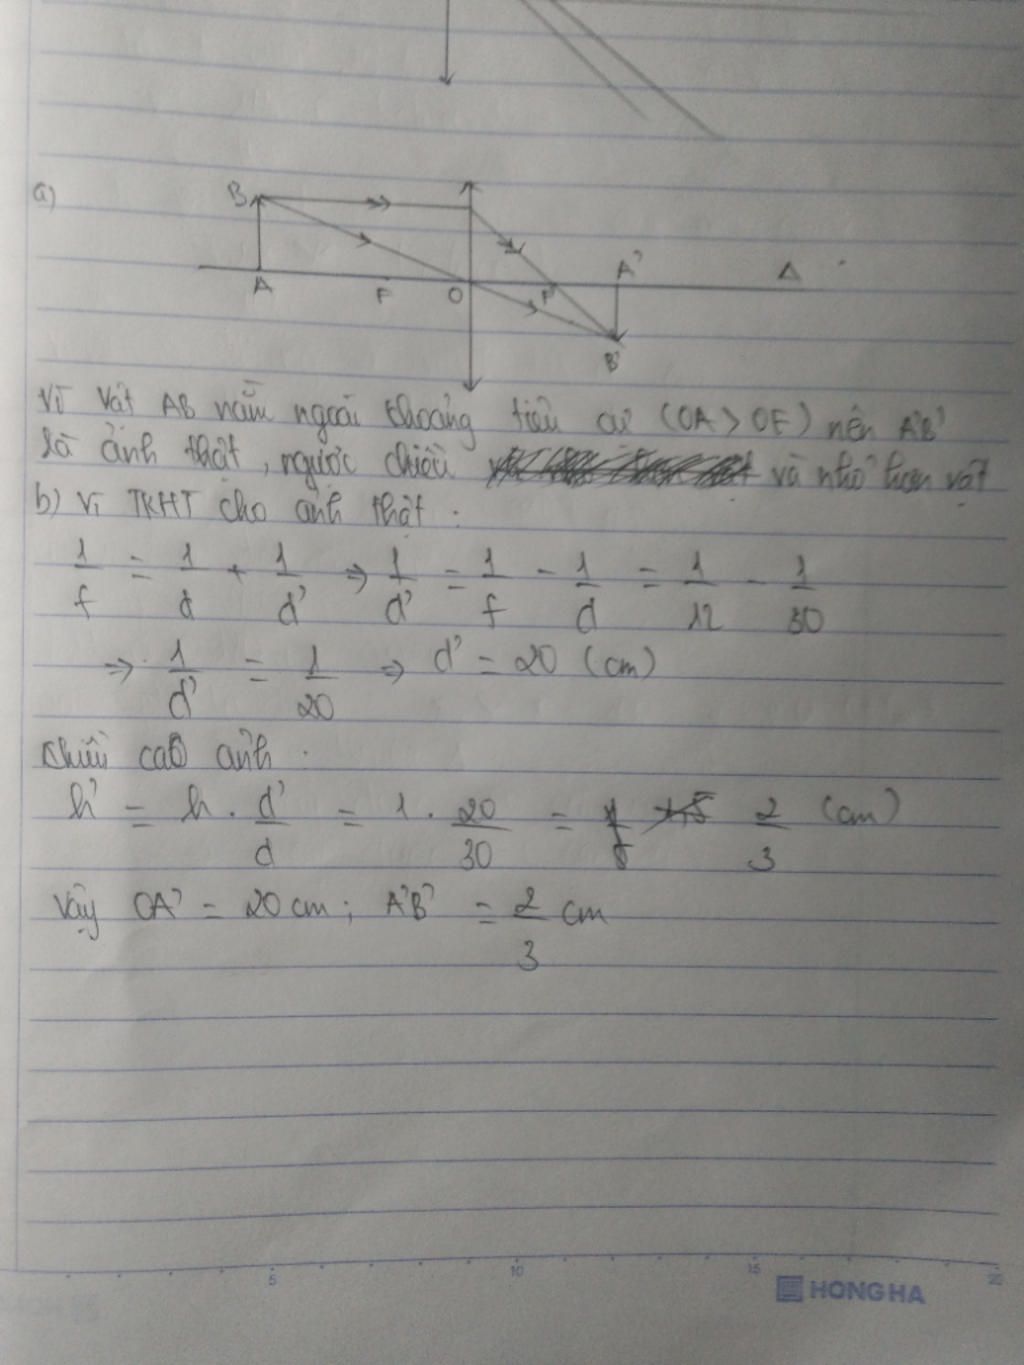 a)
B
A F O F' A' Δ
B'
Vì vật AB nằm ngoài khoảng tiêu cự (OA > OF) nên A'B'
là ảnh thật, ngược chiều và nhỏ hơn vật
b) Vì TKHT cho ảnh thật :
1/f = 1/d + 1/d' => 1/d' = 1/f - 1/d = 1/12 - 1/30
=> 1/d' = 1/20 => d' = 20 (cm)
Chiều cao ảnh :
h' = h . d'/d = 1 . 20/30 = 2/3 (cm)
Vậy OA' = 20 cm ; A'B' = 2/3 cm
5 10 15 20
HONG HA